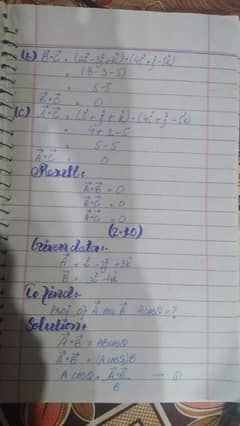 (b) B⃗·C⃗ = (2î-3ĵ+k̂)·(4î+ĵ-5k̂)
= (8-3-5)
= 5-5
B⃗·C⃗ = 0
(c) A⃗·C⃗ = (î+ĵ+k̂)·(4î+ĵ-5k̂)
= 4+1-5
= 5-5
A⃗·C⃗ = 0
Result:
A⃗·B⃗ = 0
B⃗·C⃗ = 0
A⃗·C⃗ = 0
(2.10)
Given data:
A⃗ = î-2ĵ+3k̂
B⃗ =
To find:
Proj of A⃗ on B⃗ Acosθ=?
Solution:
A⃗·B⃗ = ABcosθ
A⃗·B⃗ = (Acosθ)B
Acosθ = A⃗·B⃗ / B →